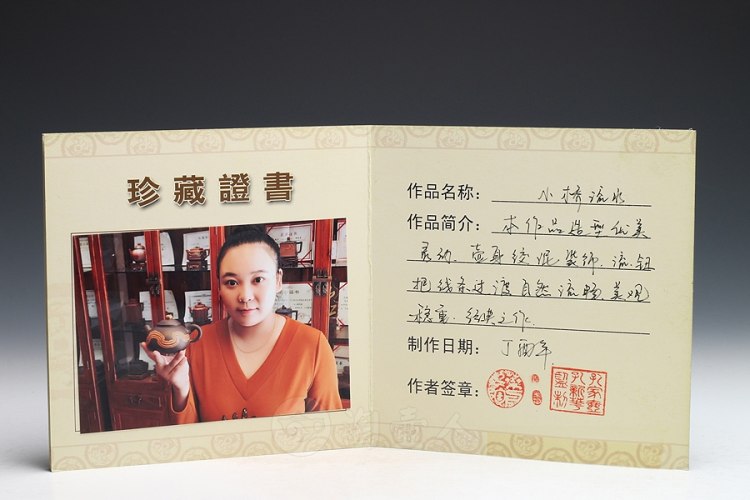 珍藏證書
作品名称：小桥流水
作品简介：本作品造型优美
灵动，壶身绞泥装饰，流、钮
把线条过渡自然流畅，美观
稳重，经典之作。
制作日期：丁酉年
作者签章：